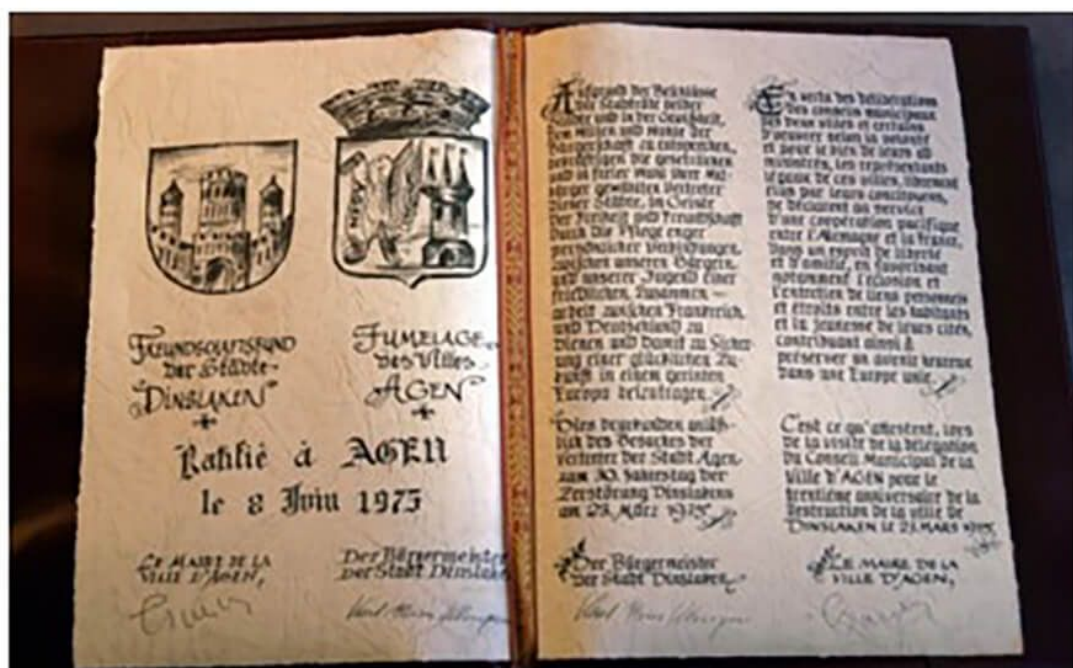 FREUNDSCHAFTSBUND
der Städte
DINSLAKEN
JUMELAGE
des Villes
AGEN
Ratifié à AGEN
le 8 Juin 1975
LE MAIRE DE LA
VILLE D'AGEN,
Der Bürgermeister
Der Stadt Dinslaken
Aufgrund der Beschlüsse
der Stadträte beider
Städte und in der Gewißheit,
dem Willen und Wohle der
Bürgerschaft zu entsprechen,
bekräftigen die gesetzlichen
und in freier Wahl ihrer Mit-
bürger gewählten Vertreter
dieser Städte, im Geiste
der Freiheit und Freundschaft
durch die Pflege enger
persönlicher Verbindungen
zwischen unseren Bürgern
und unserer Jugend einer
friedlichen Zusammen-
arbeit zwischen Frankreich
und Deutschland zu
dienen und damit zu Sicher
ung einer glücklichen Zu-
kunft in einem geeinten
Europa beizutragen.
Dies beurkunden anläß-
lich des Besuches der
Vertreter der Stadt Agen
zum 30. Jahrestag der
Zerstörung Dinslakens
am 23. März 1975
Der Bürgermeister
der Stadt Dinslaken
En vertu des délibérations
des conseils municipaux
des deux villes et certains
d'oeuvrer selon la volonté
et pour le bien de leurs ad
ministrés, les représentants
légaux de ces villes, librement
élus par leurs concitoyens,
se déclarent au service
d'une coopération pacifique
entre l'Allemagne et la France,
dans un esprit de liberté
et d'amitié, en favorisant
notamment l'éclosion et
l'entretien de liens personnels
et étroits entre les habitants
et la jeunesse de leurs cités,
contribuant ainsi à
préserver un avenir heureux
dans une Europe unie.
C'est ce qu'attestent, lors
de la visite de la délégation
du Conseil Municipal de la
Ville d'AGEN pour le
trentième anniversaire de la
destruction de la ville de
DINSLAKEN LE 23 MARS 1975
LE MAIRE DE LA
VILLE D'AGEN,